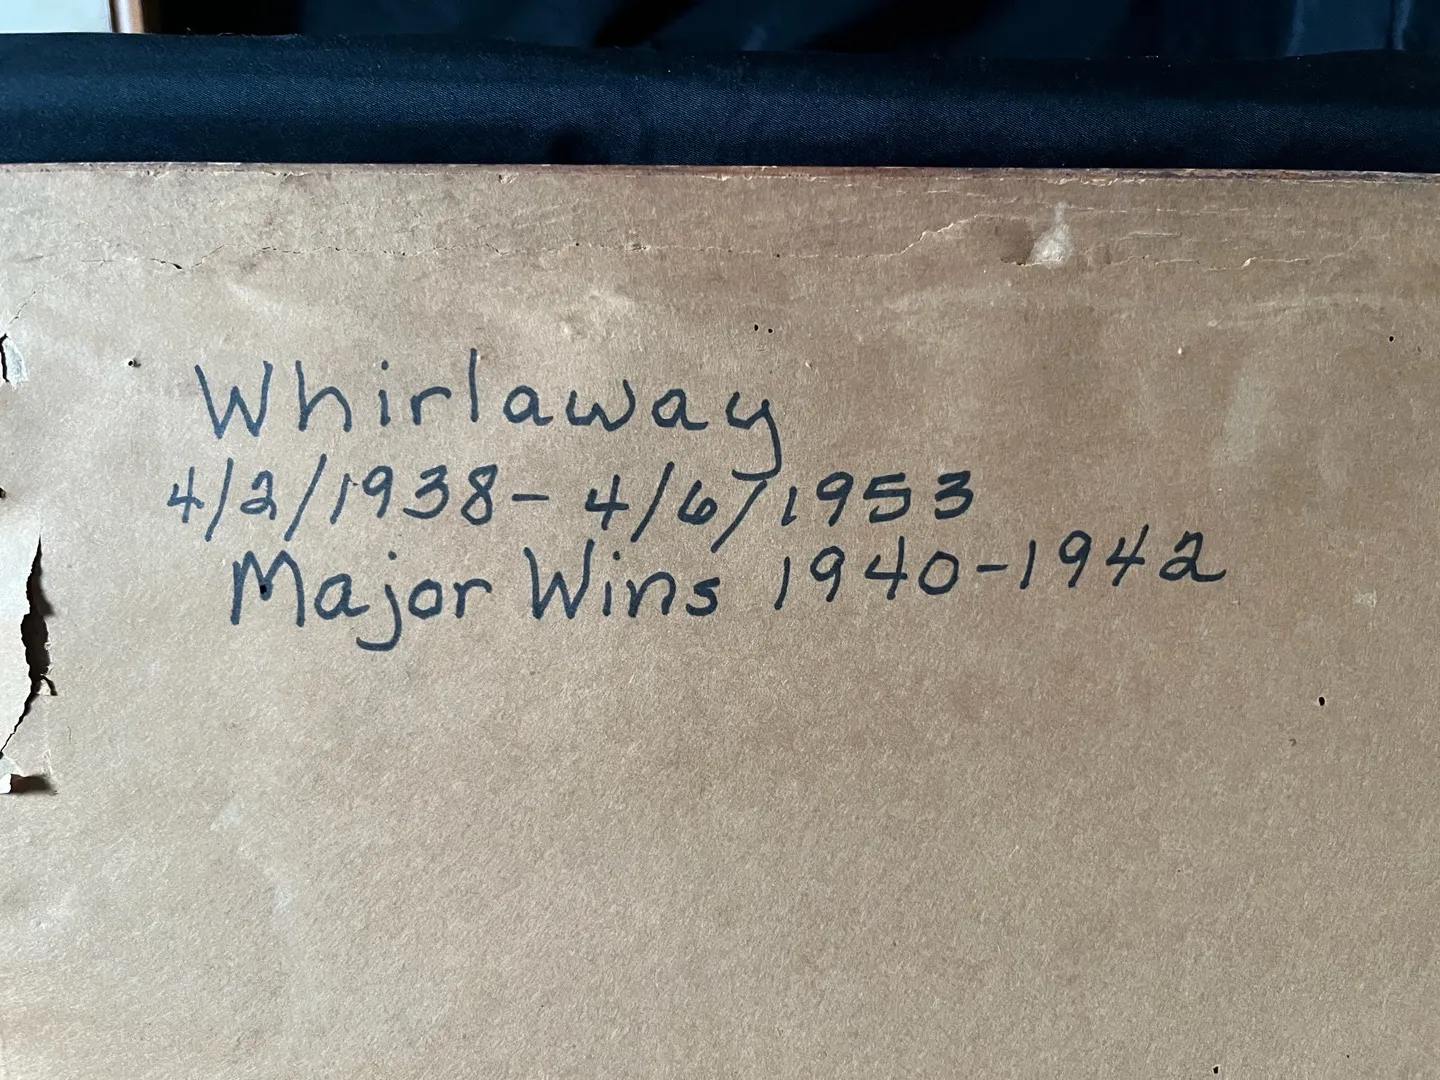 Whirlaway
4/2/1938- 4/6/1953
Major Wins 1940-1942